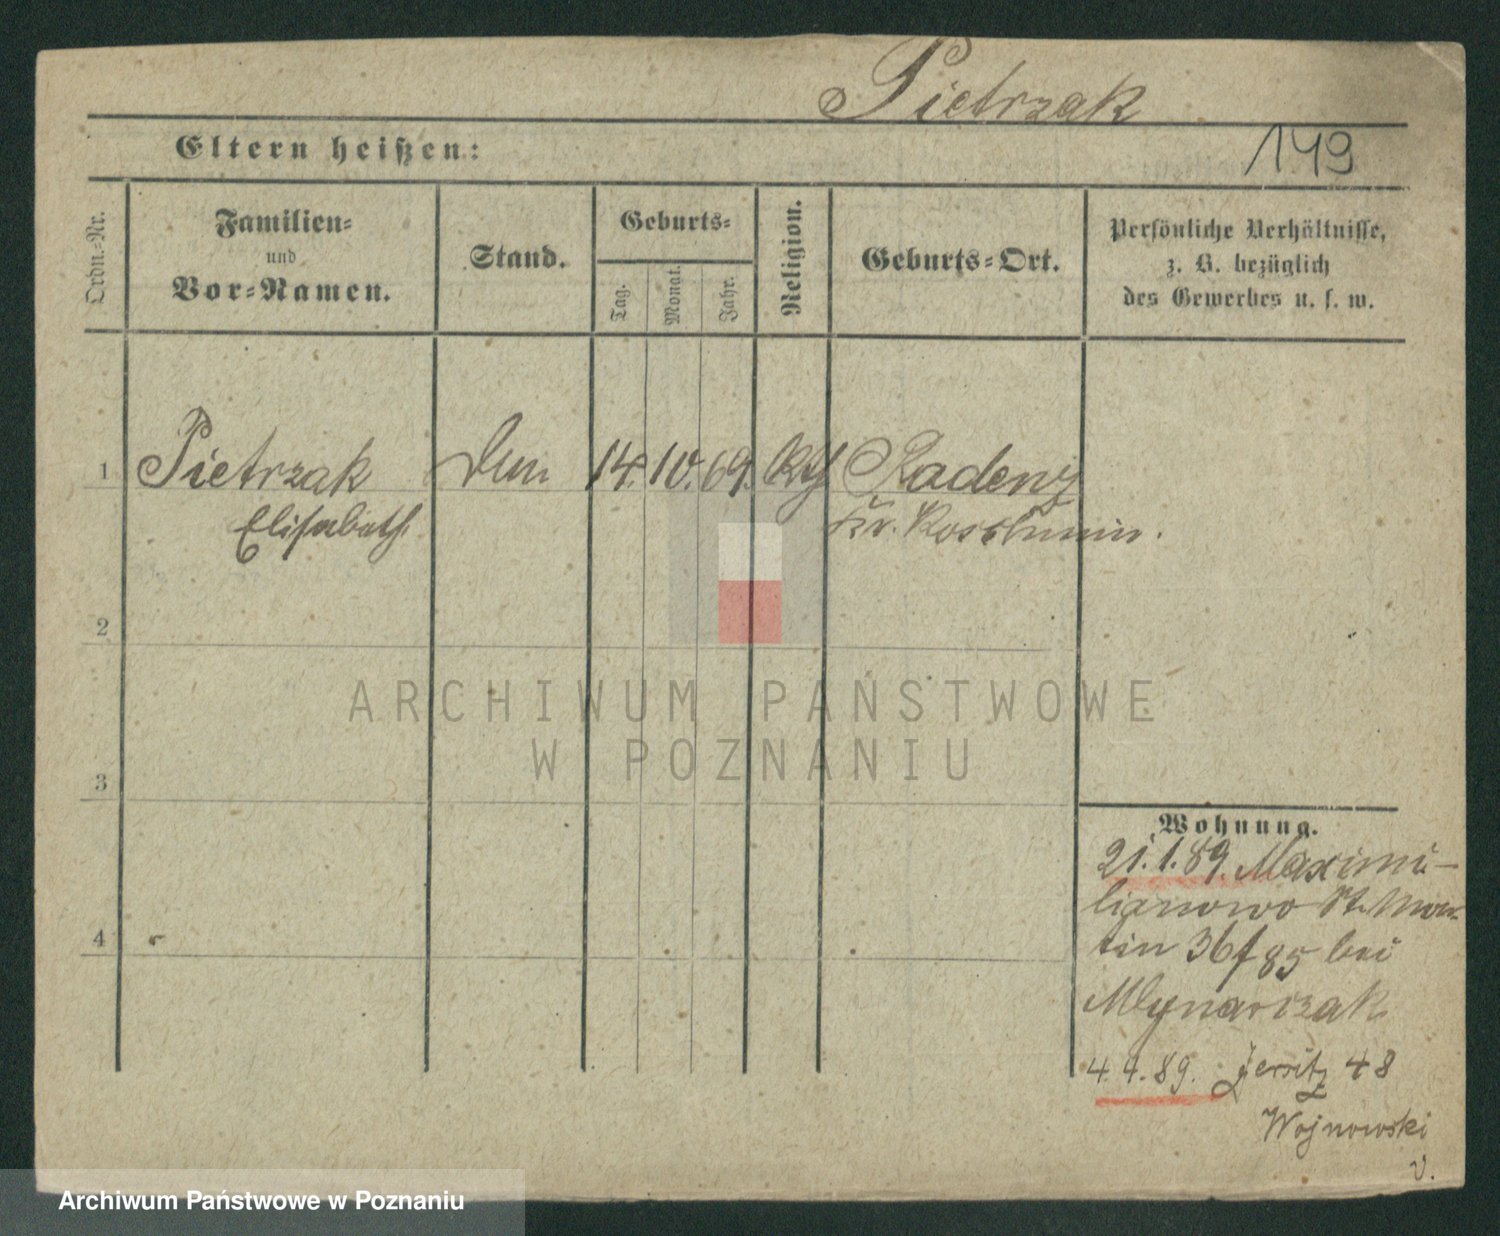 Pietrzak
Eltern heißen:
149
Ordn.-Nr.
Familien-
und
Vor-Namen.
Stand.
Geburts-
Tag.
Monat.
Jahr.
Religion.
Geburts-Ort.
Persönliche Verhältnisse,
z. B. bezüglich
des Gewerbes u. s. w.
1 Pietrzak 14. 10. 69. Radenz
Elisabeth Kr. Koschmin.
2
3
4
ARCHIWUM PAŃSTWOWE
W POZNANIU
Wohnung.
21.1.89. Maximi-
lianowo St. Mar-
tin 36/85 bei
Mlynarczak
4.4.89. Jersitz 48
Wojnowski
v.
Archiwum Państwowe w Poznaniu